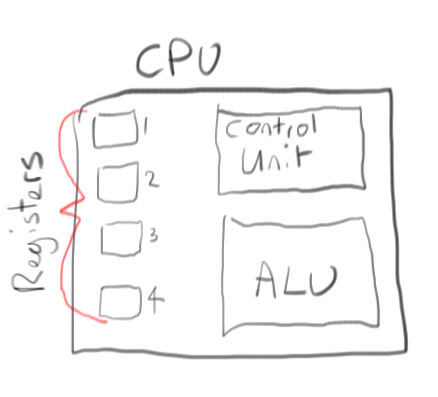 CPU
Registers
1
2
3
4
Control
Unit
ALU